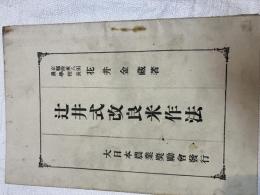 花井金蔵著
辻井式改良米作法
大日本農業奨励會發行